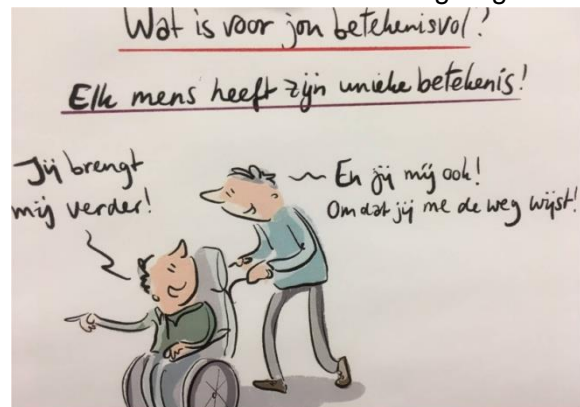 Wat is voor jou betekenisvol?
Elk mens heeft zijn unieke betekenis!
Jij brengt
mij verder!
En jij mij ook!
Omdat jij me de weg wijst!